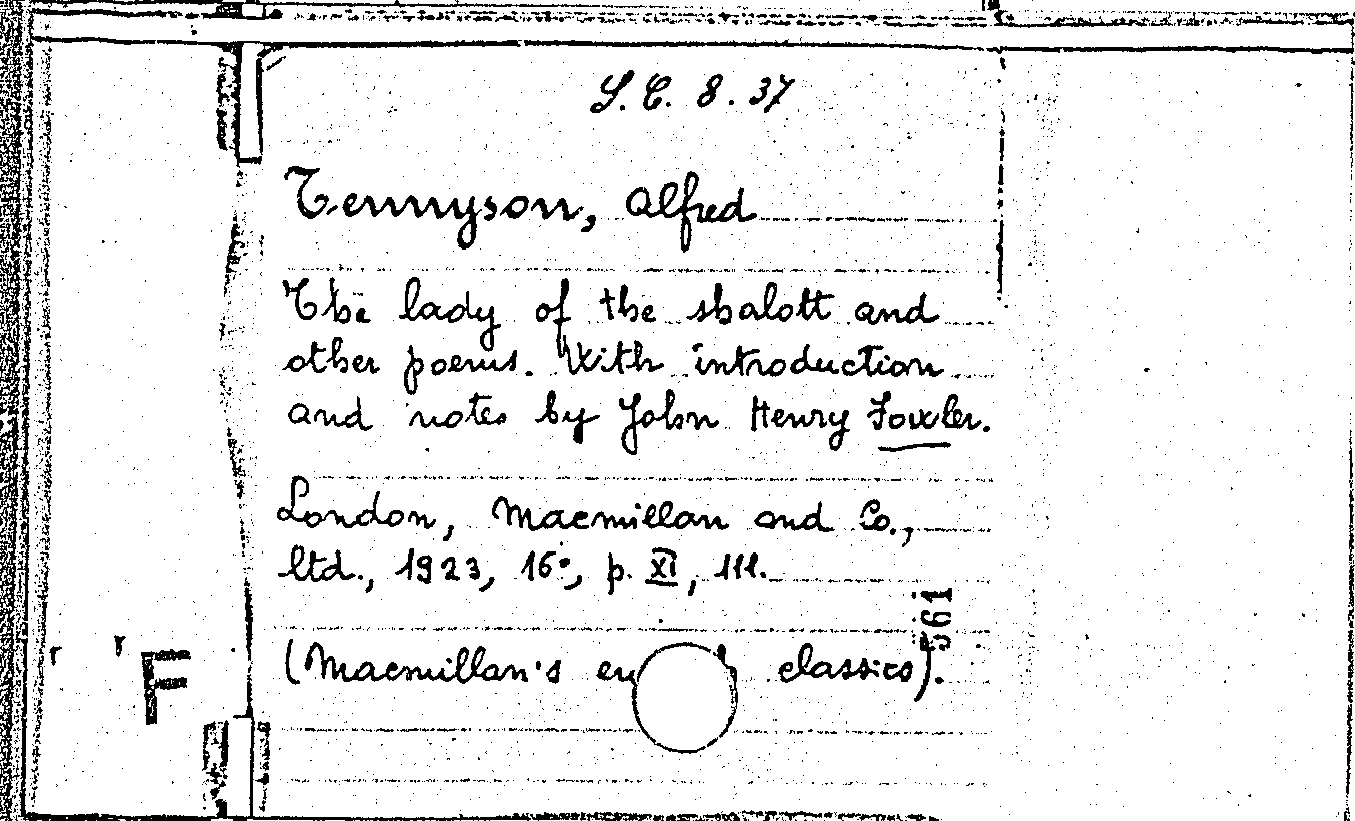 S.C. 8.37
Tennyson, Alfred
The lady of the shalott and
other poems. With introduction
and notes by John Henry Fowler.
London, Macmillan and Co.,
ltd., 1923, 16°, p. XI, 111.
561
(Macmillan's classics).
F